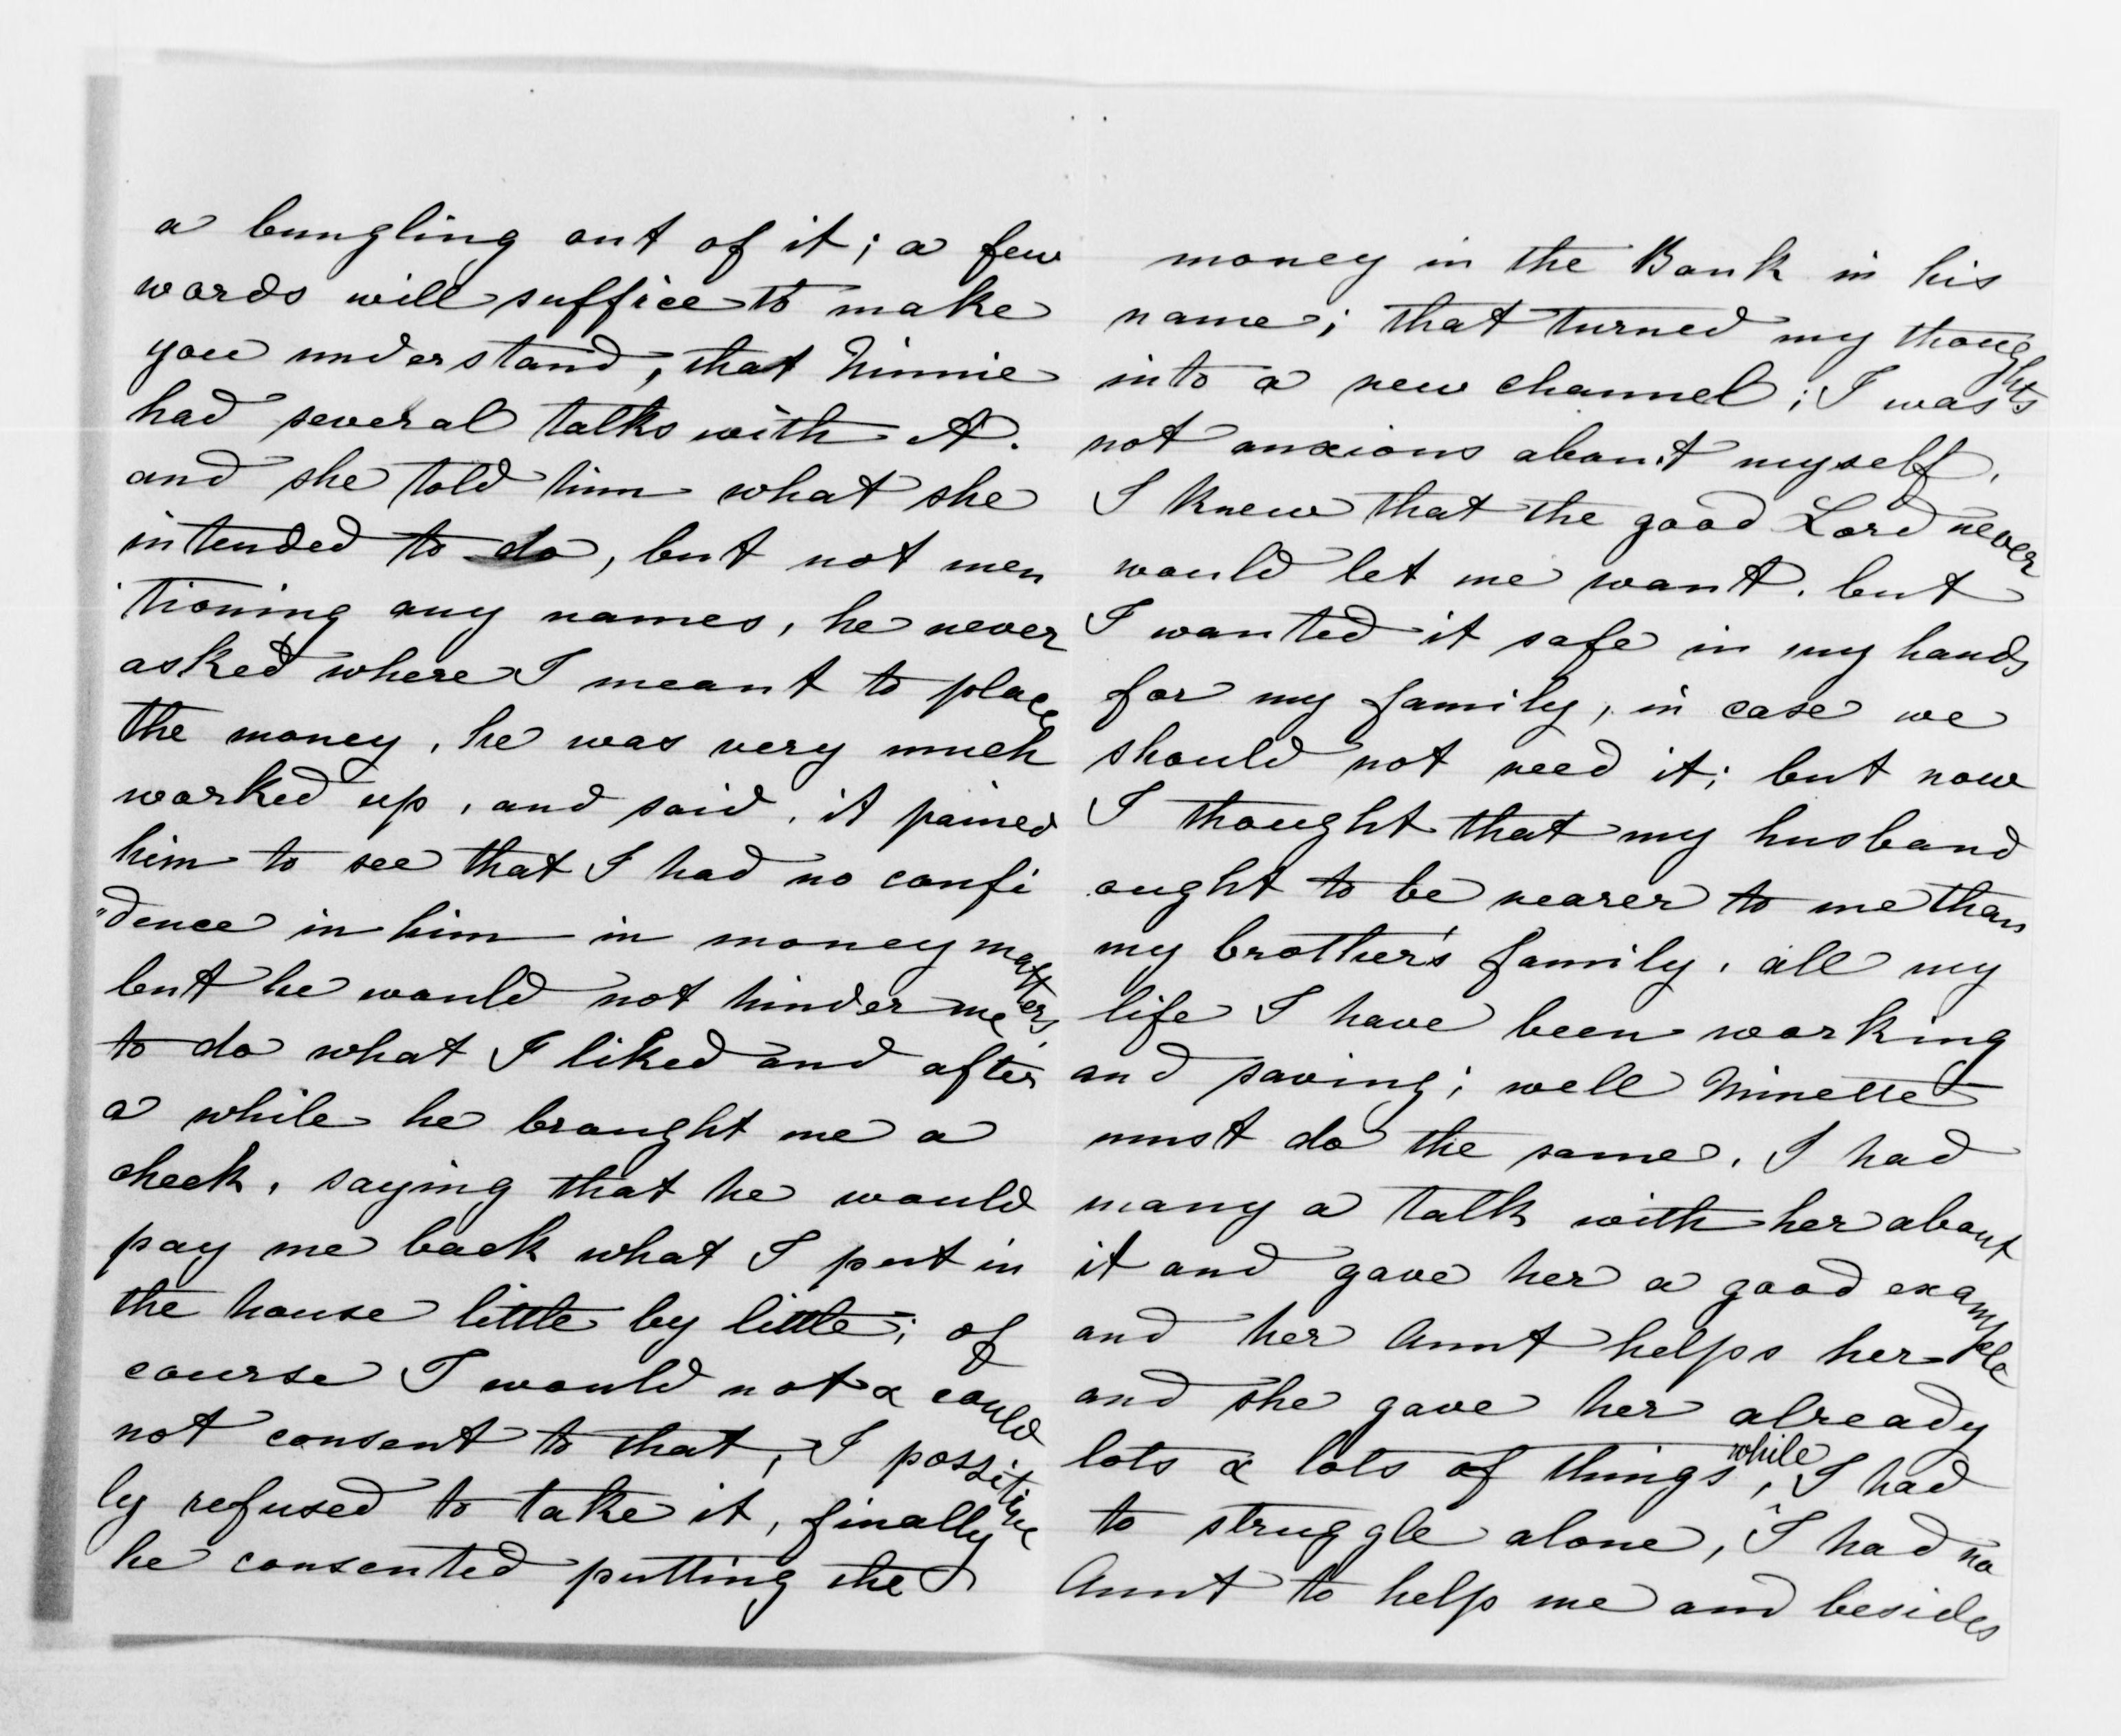 a bungling out of it; a few
words will suffice to make
you understand, that Minnie
had several talks with A.
and she told him what she
intended to do, but not men
tioning any names, he never
asked where I meant to place
the money, he was very much
worked up, and said, it pained
him to see that I had no confi
"dence in him in money matters,
but he would not hinder me
to do what I liked and after
a while he brought me a
check, saying that he would
pay me back what I put in
the house little by little; of
course I would not & could
not consent to that, I possitive
ly refused to take it, finally
he consented putting the
money in the Bank in his
name; that turned my thoughts
into a new channel; I was
not anxious about myself,
I knew that the good Lord never
would let me want, but
I wanted it safe in my hands
for my family, in case we
should not need it; but now
I thought that my husband
ought to be nearer to me than
my brother's family, all my
life I have been working
and saving; well Minette
must do the same, I had
many a talk with her about
it and gave her a good example
and her Aunt helps her
and she gave her already
lots & lots of things, while I had
to struggle alone, I had no
Aunt to help me and besides